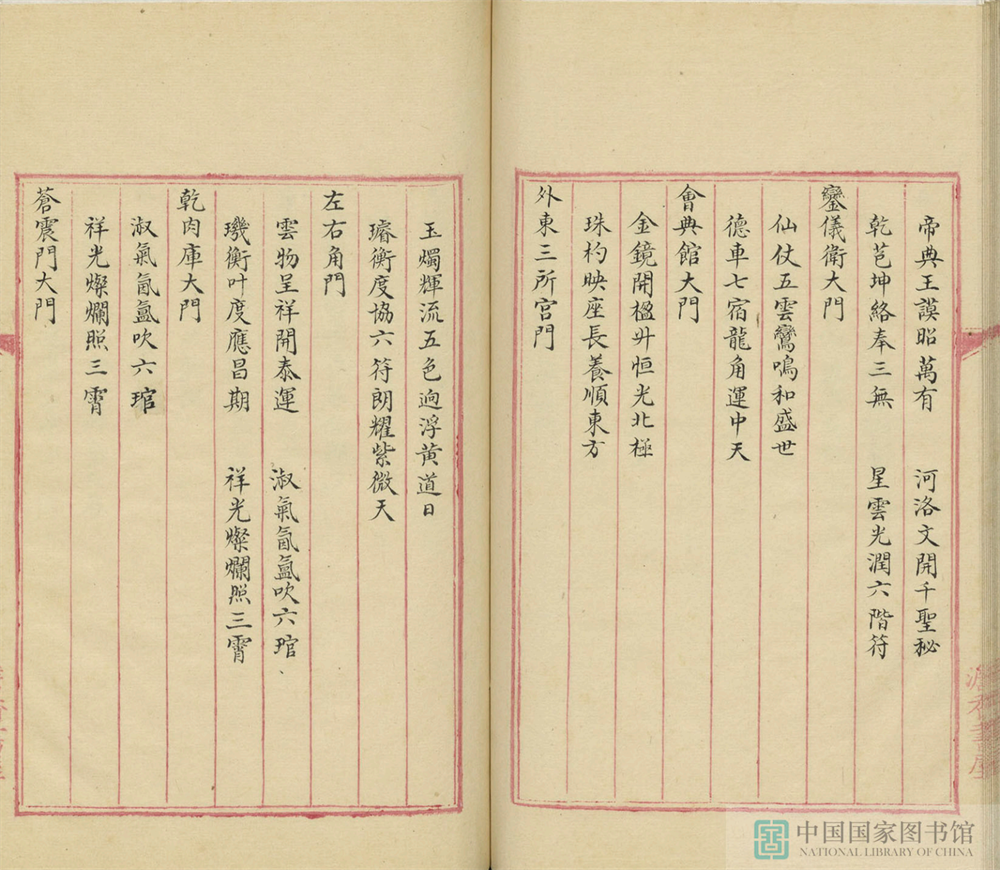 帝典王謨昭萬有　河洛文開千聖秘
乾苞坤絡奉三無　星雲光潤六階符
鑾儀衛大門
仙仗五雲鸞鳴和盛世
德車七宿龍角運中天
會典館大門
金鏡開楹升恒光北極
珠杓映座長養順東方
外東三所宮門
玉燭輝流五色逈浮黃道日
璿衡度協六符朗耀紫微天
左右角門
雲物呈祥開泰運　淑氣氤氳吹六琯
璣衡叶度應昌期　祥光燦爛照三霄
乾肉庫大門
淑氣氤氳吹六琯
祥光燦爛照三霄
蒼震門大門
中国国家图书馆
NATIONAL LIBRARY OF CHINA